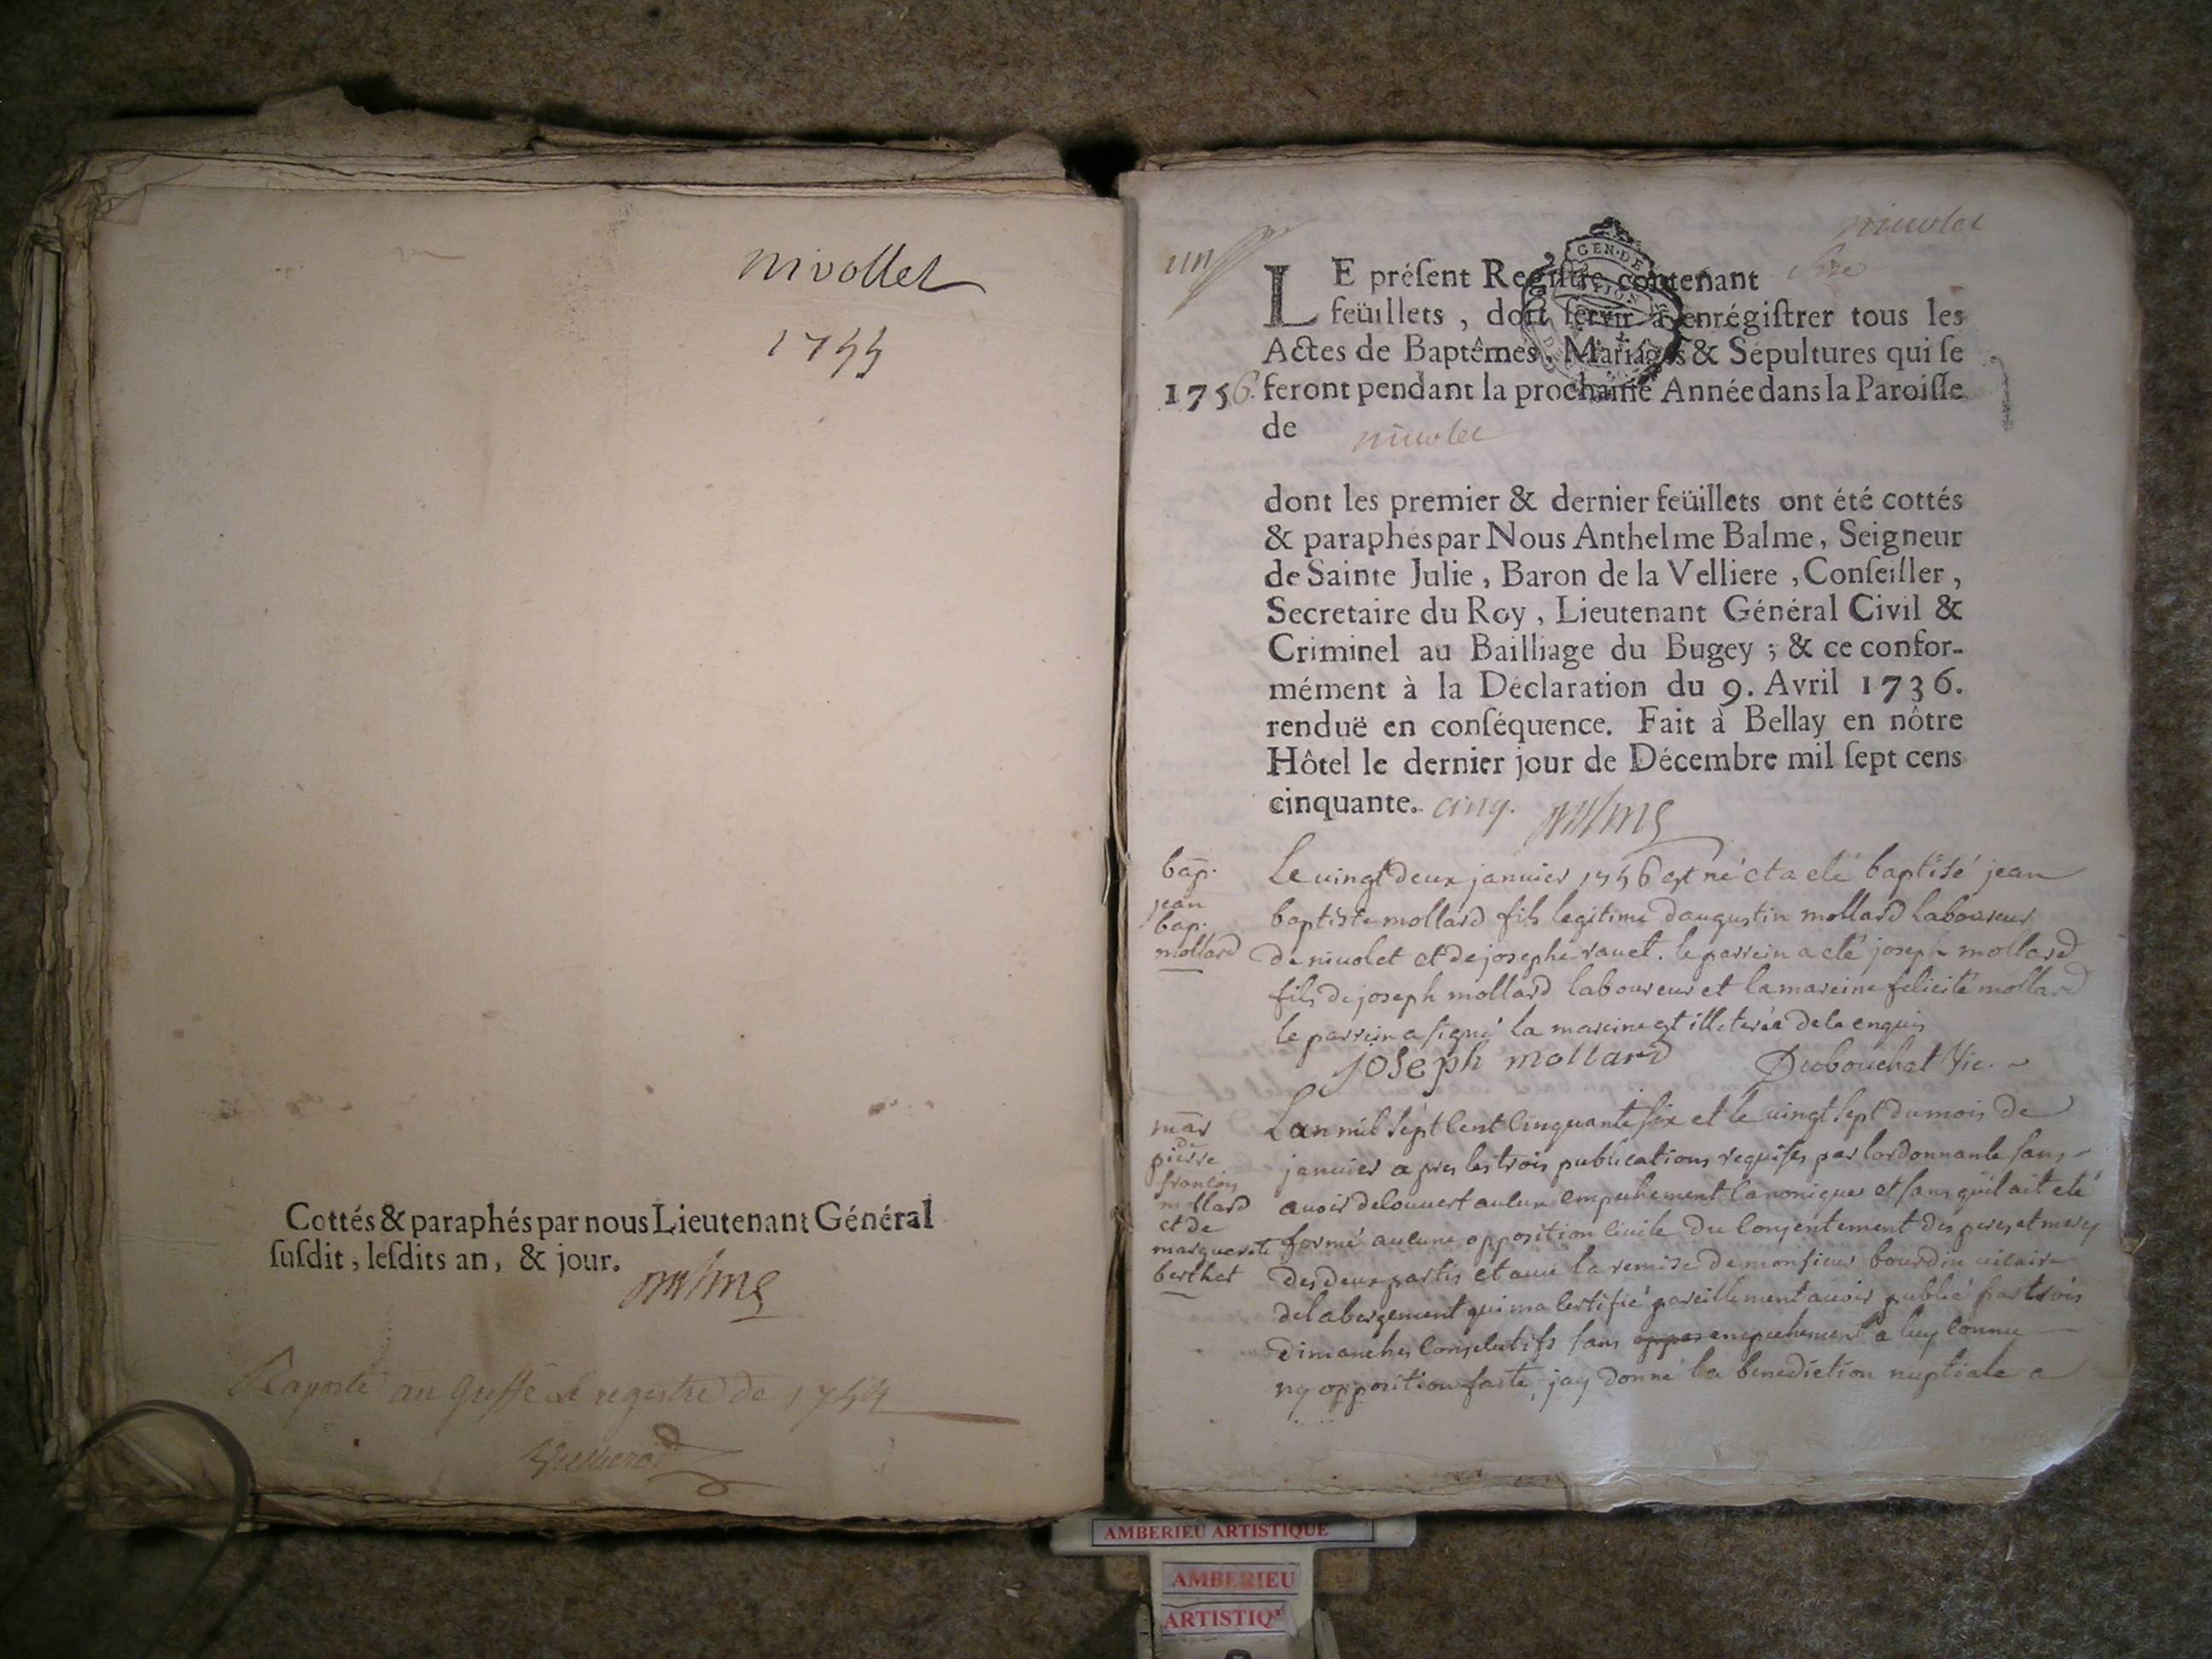 nivollet
1755
Cottés & paraphés par nous Lieutenant Général
ſuſdit, leſdits an, & jour.
Raporté au Greffe le registre de 1755
un
nivolet
LE préſent Regiſtre contenant
feüillets, doit ſervir à enrégiſtrer tous les
Actes de Baptêmes, Mariages & Sépultures qui ſe
1756. feront pendant la prochaine Année dans la Paroiſſe
de nivolet
dont les premier & dernier feüillets ont été cottés
& paraphés par Nous Anthelme Balme, Seigneur
de Sainte Julie, Baron de la Velliere, Conſeiller,
Secretaire du Roy, Lieutenant Général Civil &
Criminel au Bailliage du Bugey ; & ce confor-
mément à la Déclaration du 9. Avril 1736.
renduë en conſéquence. Fait à Bellay en nôtre
Hôtel le dernier jour de Décembre mil ſept cens
cinquante. cinq. Balme
bap.
jean
bap.
mollard
Le vingt deux janvier 1756 est né et a eté baptisé jean
baptiste mollard fils legitime daugustin mollard laboureur
de nivolet et de josephe ravet. le parrein a eté joseph mollard
fils de joseph mollard laboureur et la mareine felicité mollard
le parrein a signé la mareine est illeterée de ce enquis
joseph mollard Dubouchat Vic.
mar
de
pierre
françois
mollard
et de
marguerite
berthet
Lan mil sept cent cinquante six et le vingt sept du mois de
janvier apres les trois publications requises par lordonnance sans
avoir decouvert aucun empechement canonique et sans quil ait eté
formé aucune opposition civile du consentement des peres et meres
des deux partis et avec la remise de monsieur bourdin vicaire
de labergement qui ma certifié pareillement avoir publié par trois
dimanches consecutifs sans empechement a luy connu
ny opposition faite, jay donné la benediction nuptiale a
AMBERIEU ARTISTIQUE
AMBERIEU
ARTISTIQ